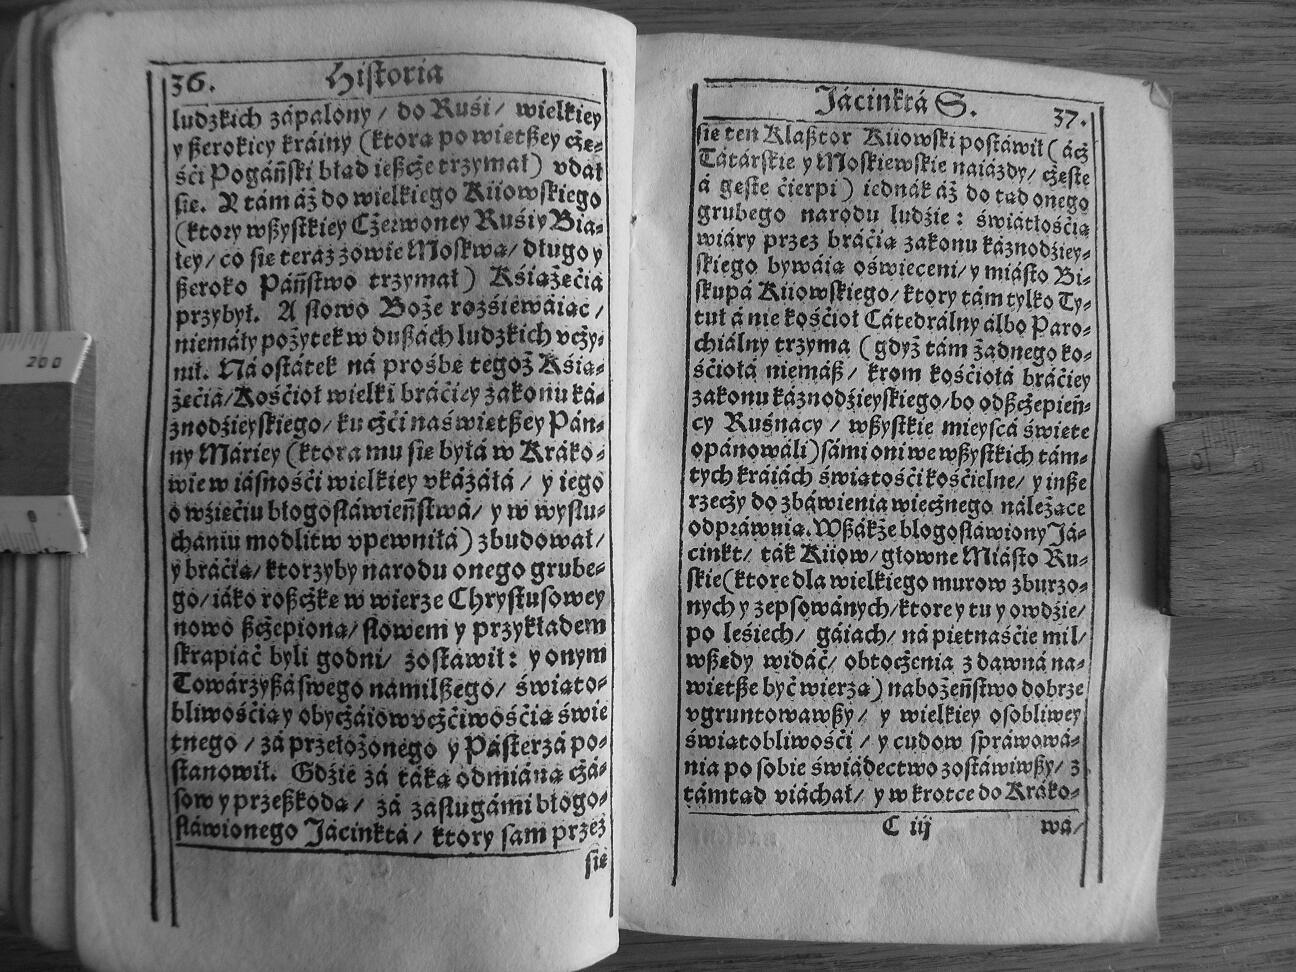 36. Historia
ludzkich zápalony / do Ruśi / wielkiey
y ßerokiey kráiny (ktora po wietßey cże-
śći Pogáńſki błąd ießcże trzymał) vdał
ſie. A tám áż do wielkiego Kiiowſkiego
(ktory wßyſtkiey Cżerwoney Ruśi y Bia-
łey / co ſie teraz zowie Moſkwa / długo y
ßeroko Páńſtwo trzymał) Kśiążećiá
przybył. A ſłowo Boże rozśiewáiąc /
niemáły pożytek w dußách ludzkich vcży-
nił. Ná oſtátek ná prośbę tegoż Kśią-
żećiá / Kośćioł wielki bráćiey zakonu ká-
znodźieyſkiego / ku cżći naświętßey Pán-
ny Máriey (ktora mu ſie byłá w Kráko-
wie w iáſnośći wielkiey vkázáłá / y iego
o wźięćiu błogoſłáwieńſtwá / y w wyſłu-
chániu modlitw vpewniłá) zbudował /
y bráćią / ktorzyby narodu onego grube-
go / iáko roßcżkę w wierze Chryſtuſowey
nowo ßcżepioną / ſłowem y przykładem
ſkrapiáć byli godni / zoſtáwił : y onym
Towárzyßá ſwego namilßego / świąto-
bliwośćią y obycżáiow vcżćiwośćią świe
tnego / zá przełożonego y Páſterzá po-
ſtánowił. Gdźie zá táką odmiáną cżá-
ſow y przeßkodą / zá zaſługámi błogo-
ſłáwionego Jácinktá / ktory ſam przez
ſię
Jácinktá S. 37.
ſię ten Klaßtor Kiiowſki poſtáwił (ácż
Tátárſkie y Moſkiewſkie naiázdy / cżeſte
á gęſte ćierpi) iednák áż do tąd onego
grubego narodu ludźie : świátłośćią
wiáry przez bráćią zakonu káznodźiey-
ſkiego bywáią oświeceni / y miáſto Bi-
ſkupá Kiiowſkiego / ktory tám tylko Ty-
tuł á nie kośćioł Cátedrálny álbo Paro-
chiálny trzyma (gdyż tám żadnego ko-
śćiołá niemáß / krom kośćiołá bráćiey
zakonu káznodźieyſkiego / bo odßcżepień-
cy Ruśnacy / wßyſtkie mieyſcá święte
opánowáli) ſámi oni we wßyſtkich tám-
tych kráiách świątośći kośćielne / y inße
rzecży do zbáwienia wiecżnego należące
odpráwuią. Wßákże błogoſłáwiony Já-
cinkt / ták Kiiow / głowne Miáſto Ru-
ſkie (ktore dla wielkiego murow zburzo-
nych y zepſowánych / ktore y tu y owdźie /
po leśiech / gáiach / ná piętnaśćie mil /
wßędy widáć / obtocżenia z dawná na-
wietße być wierzą) nabożeńſtwo dobrze
vgruntowawßy / y wielkiey oſobliwey
świątobliwośći / y cudow ſpráwowá-
nia po ſobie świádectwo zoſtáwiwßy / z
támtąd viáchał / y w krotce do Kráko-
C iij wá /